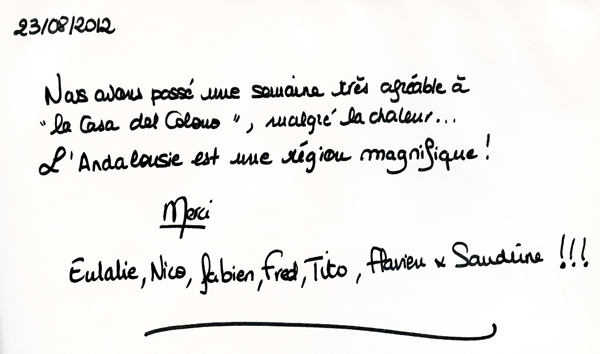 23/08/2012
Nous avons passé une semaine très agréable à
"la Casa del Colono", malgré la chaleur...
L'Andalousie est une région magnifique !
Merci
Eulalie, Nico, Fabien, Fred, Tito, Flavien & Sandrine !!!